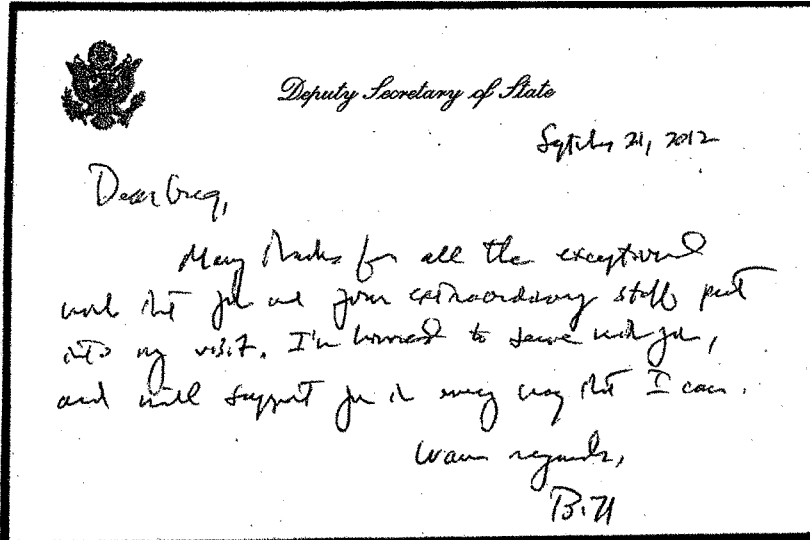 Deputy Secretary of State
September 21, 2012
Dear Greg,
Many thanks for all the exceptional
work that you and your extraordinary staff put
into my visit. I'm honored to serve with you,
and will support you in every way that I can.
Warm regards,
Bill